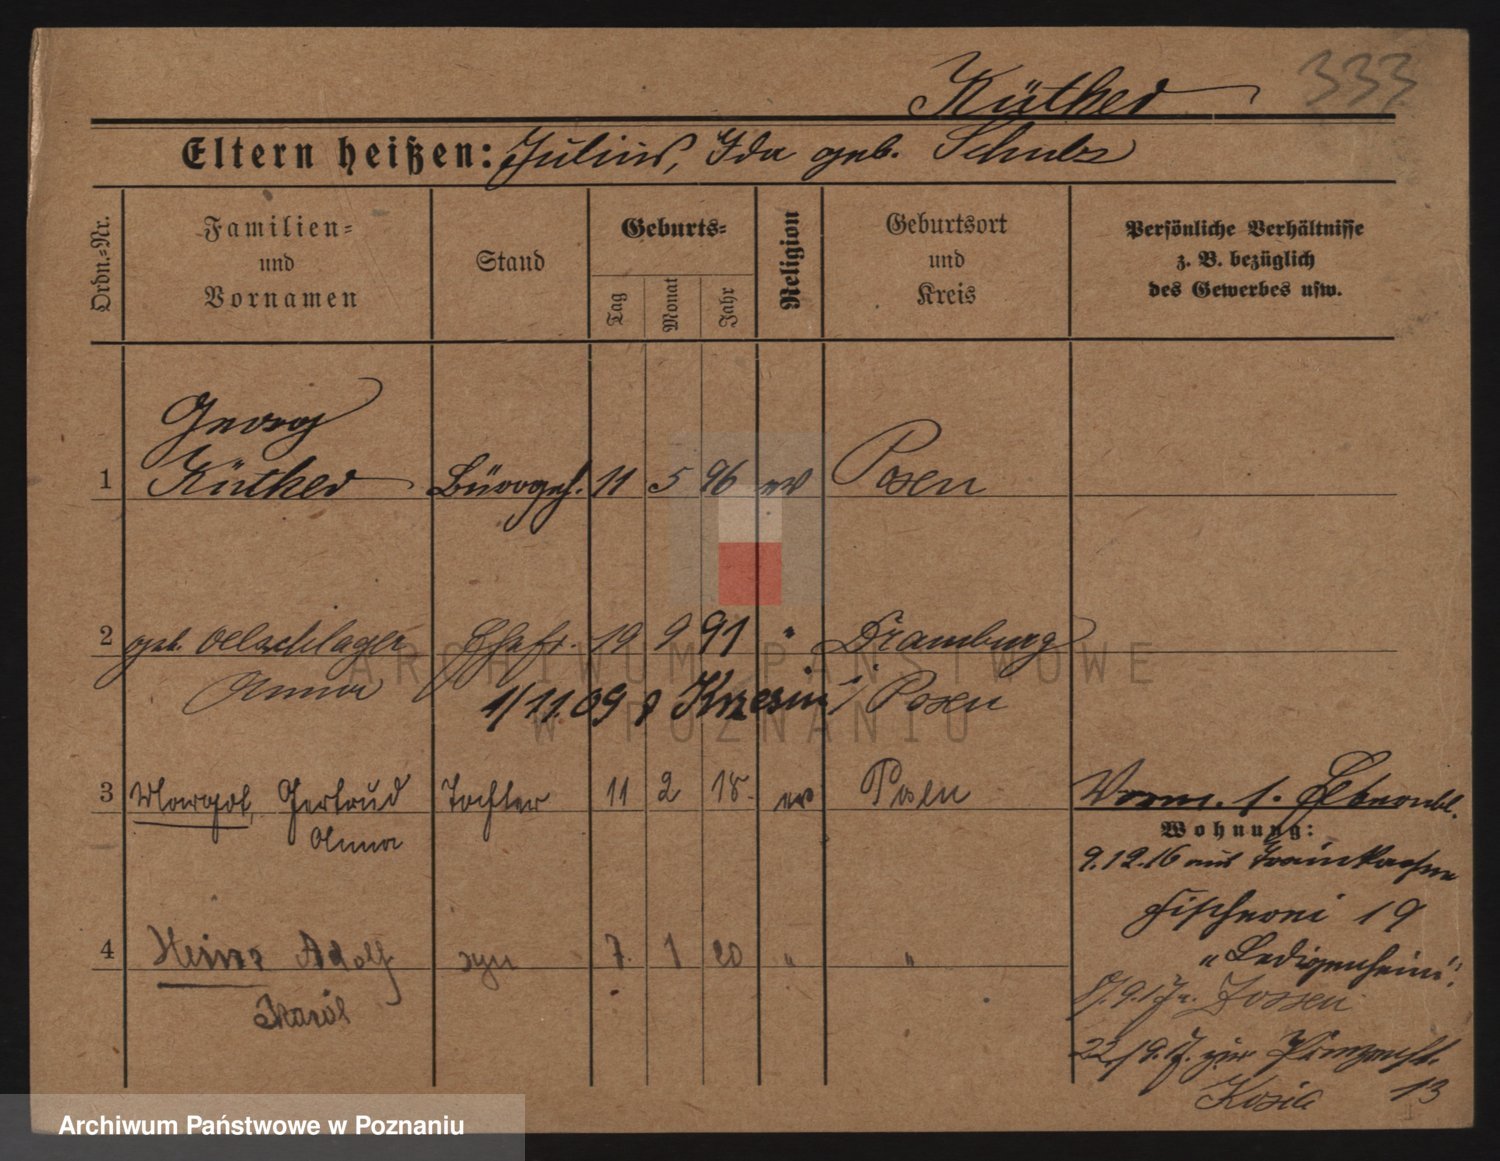 333
Küther
Eltern heißen: Julius, Ida geb. Schulz
Ordn.-Nr.
Familien-
und
Vornamen
Stand
Geburts-
Tag
Monat
Jahr
Religion
Geburtsort
und
Kreis
Persönliche Verhältnisse
z. B. bezüglich
des Gewerbes usw.
Georg
1 Küther Bürogeh. 11 5 96 ev Posen
2 geb. Oelschlager Ehefr. 19 9 91 " Dramburg
Anna 1/11.09 Krzesin / Posen
3 Margot, Gertrud Tochter 11 2 18. ev Posen
Anna
Wohnung:
9.12.16 aus
Fischerei 19
"Ledigenheim".
4 Heinz Adolf syn 7. 1 20 " "
Karol
Zossen
22./9.17. zur
Kosie 13
ARCHIWUM PAŃSTWOWE
W POZNANIU
Archiwum Państwowe w Poznaniu